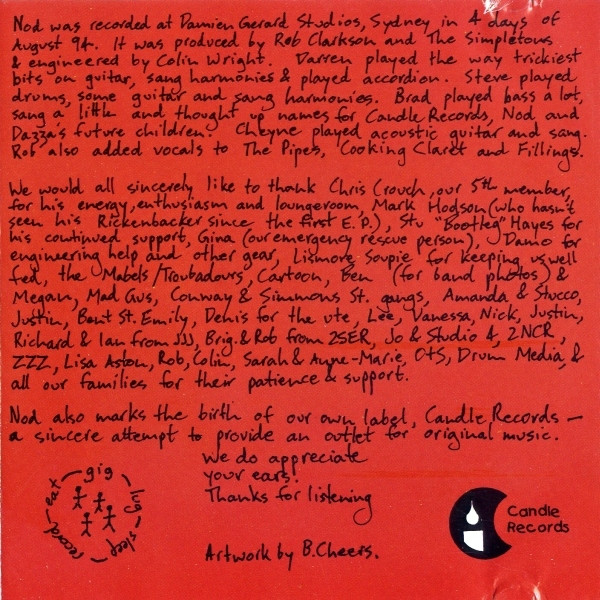 Nod was recorded at Damien Gerard Studios, Sydney in 4 days of
August 94. It was produced by Rob Clarkson and The Simpletons
& engineered by Colin Wright. Darren played the way trickiest
bits on guitar, sang harmonies & played accordion. Steve played
drums, some guitar and sang harmonies. Brad played bass a lot,
sang a little and thought up names for Candle Records, Nod and
Dazza's future children. Cheyne played acoustic guitar and sang.
Rob also added vocals to The Pipes, Cooking Claret and Fillings.
We would all sincerely like to thank Chris Crouch, our 5th member,
for his energy, enthusiasm and loungeroom, Mark Hodson (who hasn't
seen his Rickenbacker since the first E.P.), Stu "Bootleg" Hayes for
his continued support, Gina (our emergency rescue person), Damo for
engineering help and other gear, Lismore Soupie for keeping us well
fed, the Mabels/Troubadours, Cartoon, Ben (for band photos) &
Megan, Mad Gus, Conway & Simmons St. gangs, Amanda & Stucco,
Justin, Bent St. Emily, Denis for the ute, Lee, Vanessa, Nick, Justin,
Richard & Ian from JJJ, Brig. & Rob from 2SER, Jo & Studio 4, 2NCR,
ZZZ, Lisa Aston, Rob, Colin, Sarah & Anne-Marie, OTS, Drum Media, &
all our families for their patience & support.
Nod also marks the birth of our own label, Candle Records —
a sincere attempt to provide an outlet for original music.
We do appreciate
your ears.
Thanks for listening
eat – gig – lug – sleep – record –
Candle
Records
Artwork by B. Cheers.